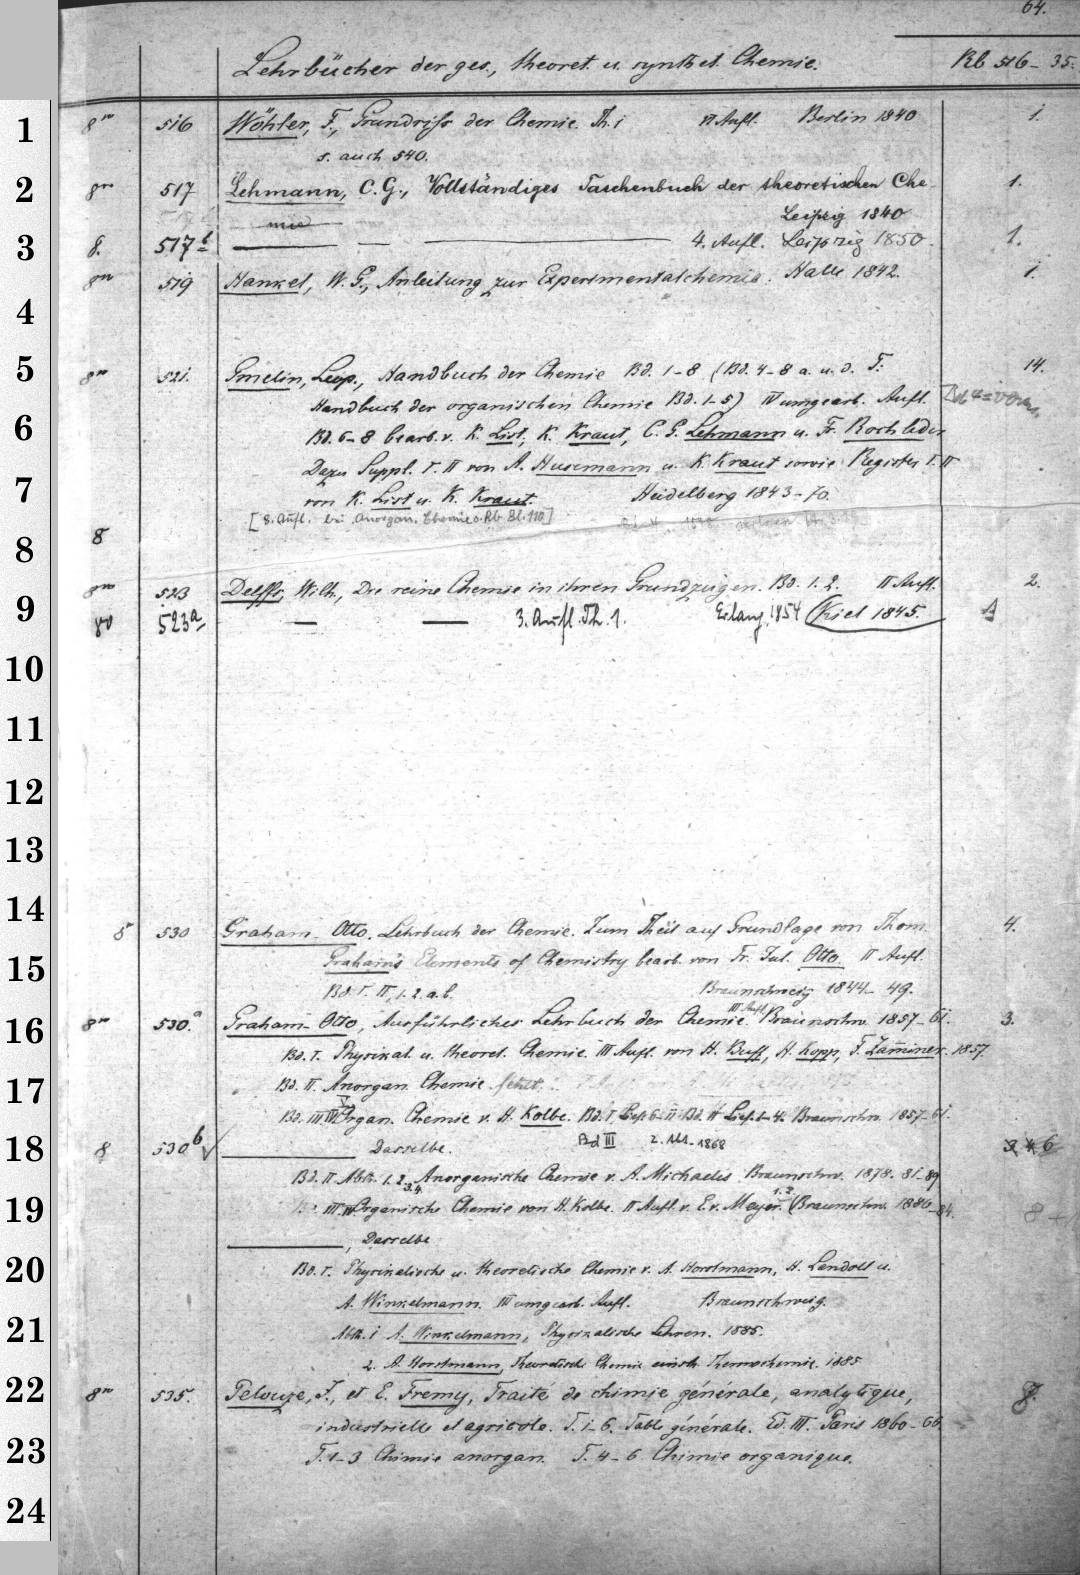 64.
Lehrbücher der ges., theoret. u. synthet. Chemie. Rb 516-35.
1 8° 516 Wöhler, F., Grundriss der Chemie. Th. 1 VI Aufl. Berlin 1840 1.
s. auch 540.
2 8° 517 Lehmann, C. G., Vollständiges Taschenbuch der theoretischen Che-
mie Leipzig 1840 1.
3 8. 517b — — — 4. Aufl. Leipzig 1850. 1.
8° 519 Hankel, W. G., Anleitung zur Experimentalchemie. Halle 1842. 1.
4
5 8° 521. Gmelin, Leop., Handbuch der Chemie Bd. 1-8 (Bd. 4-8 a. u. d. T. 14.
Handbuch der organischen Chemie Bd. 1-5) IV umgearb. Aufl.
6 Bd. 6-8 bearb. v. K. List, K. Kraut, C. G. Lehmann u. Fr. Rochleder
Dazu Suppl. I. II von A. Husemann u. K. Kraut sowie Register I. II
7 von K. List u. K. Kraut. Heidelberg 1843-70.
[8. Aufl. bei Anorgan. Chemie s. Rb Bl. 110]
8 8
8° 523 Delffs, Wilh., Die reine Chemie in ihren Grundzügen. Bd. 1. 2. II Aufl. 2.
9 8° 523a, — — 3. Aufl. Th. 1. Erlang. 1854 Kiel 1845. 1
10
11
12
13
14
8 530 Graham-Otto. Lehrbuch der Chemie. Zum Theil auf Grundlage von Thom. 4.
15 Graham's Elements of Chemistry bearb. von Fr. Jul. Otto II Aufl.
Bd. I. II, 1. 2. a. b. Braunschweig 1844-49.
16 8° 530.a Graham-Otto, Ausführliches Lehrbuch der Chemie. III Aufl. Braunschw. 1857-61. 3.
Bd. I. Physikal. u. theoret. Chemie. III Aufl. von H. Buff, H. Kopp, F. Zamminer. 1857
17 Bd. II. Anorgan. Chemie. fehlt.
Bd. III IV Organ. Chemie v. H. Kolbe. Bd. I Braunschw. 1857-61.
18 8 530b √ — Dasselbe. Bd III 2. Abt. 1868 6
Bd. II Abth. 1. 2. 3. 4 Anorganische Chemie v. A. Michaelis. Braunschw. 1878-81-89
19 III. IV Organische Chemie von H. Kolbe. II Aufl. v. E. v. Meyer. 1. 2. (Braunschw. 1880-84.
—, Dasselbe
20 Bd. I. Physikalische u. theoretische Chemie v. A. Horstmann, H. Landolt u.
A. Winkelmann. III umgearb. Aufl. Braunschweig.
21 Abth. 1 A. Winkelmann, Physikalische Lehren. 1885.
2. A. Horstmann, Theoretische Chemie einschl. Thermochemie. 1885
22 8° 535. Pelouze, J., et E. Fremy, Traité de chimie générale, analytique,
industrielle et agricole. T. 1-6. Table générale. Ed. III. Paris 1860-66.
23 T. 1-3 Chimie anorgan. T. 4-6 Chimie organique.
24